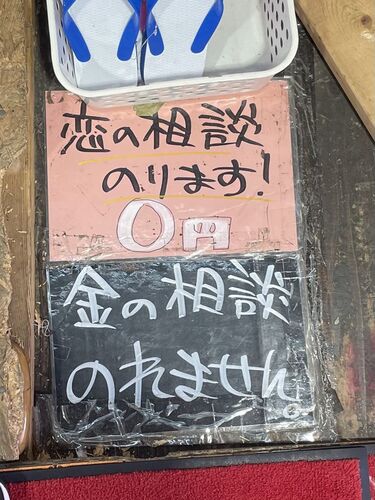 恋の相談
のります!
0円
金の相談
のれません。